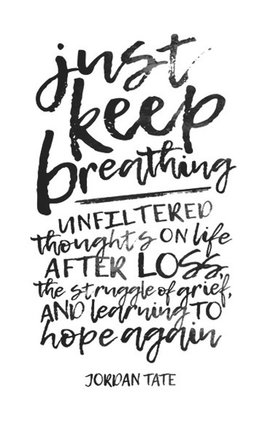 just
keep
breathing
UNFILTERED
thoughts ON life
AFTER LOSS,
the struggle of grief,
AND learning TO
hope again
JORDAN TATE